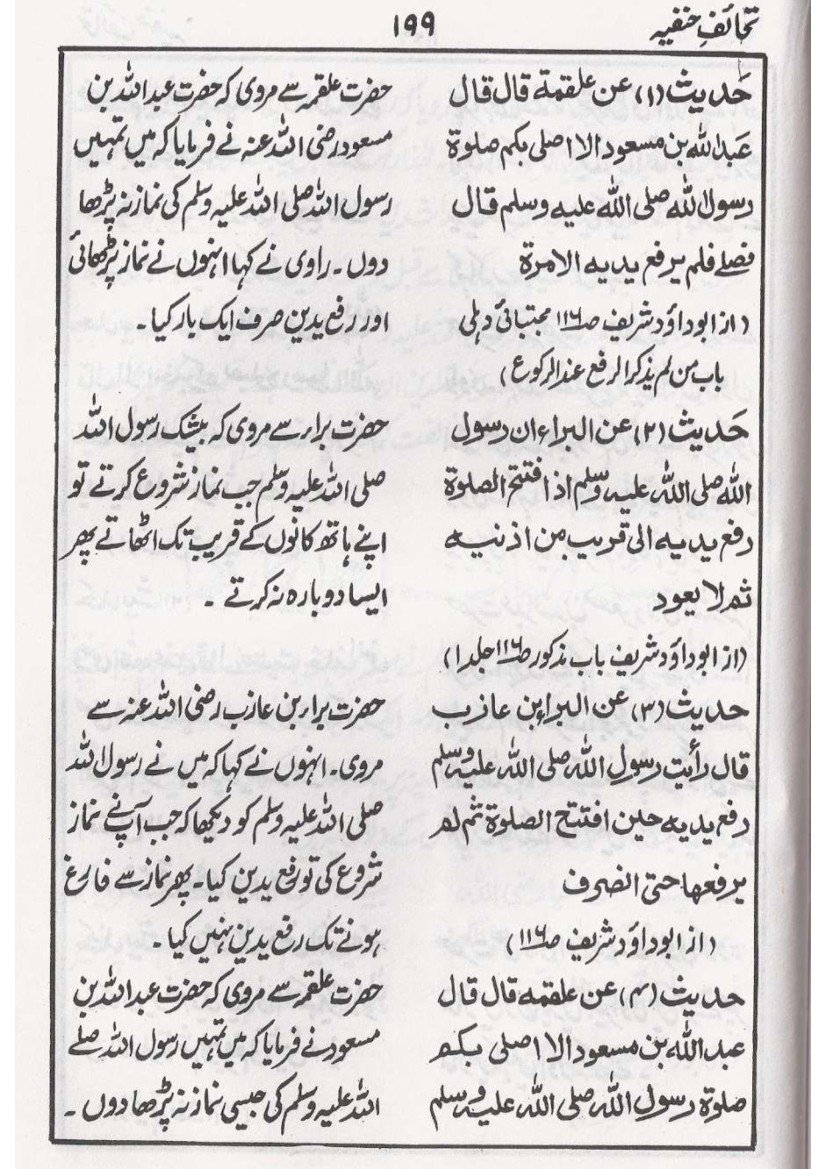 تحائفِ حنفیہ
۱۹۹
حَدیث (۱) عن علقمة قال قال
عَبد الله بن مسعود الا اصلی بکم صلوة
رسول لله صلی الله علیه وسلم قال
فصلے فلم یرفع یدیه الا مرة
(از ابوداؤد شریف صـ۱۱۶ مجتبائی دہلی
باب من لم یذکر الرفع عند الرکوع)
حَدیث (۲) عن البراء ان رسول
الله صلی الله علیہ وسلم اذا افتتح الصلوة
رفع یدیه الی قریب من اذنیه
ثم لا یعود
(از ابوداؤد شریف باب مذکور صـ۱۱۶ جلد۱)
حدیث (۳) عن البراء بن عازب
قال رأیت رسول الله صلی الله علیہ وسلم
رفع یدیه حین افتتح الصلوة ثم لم
یرفعها حتی انصرف
(از ابوداؤد شریف صـ۱۱۶)
حدیث (۴) عن علقمه قال قال
عبد الله بن مسعود الا اصلی بکم
صلوة رسول الله صلی الله علیہ وسلم
حضرت علقمہ سے مروی کہ حضرت عبداللہ بن
مسعود رضی اللہ عنہ نے فرمایا کہ میں تمہیں
رسول اللہ صلی اللہ علیہ وسلم کی نماز نہ پڑھا
دوں۔ راوی نے کہا انہوں نے نماز پڑھائی
اور رفع یدین صرف ایک بار کیا۔
حضرت براء سے مروی کہ بیشک رسول اللہ
صلی اللہ علیہ وسلم جب نماز شروع کرتے تو
اپنے ہاتھ کانوں کے قریب تک اٹھاتے پھر
ایسا دوبارہ نہ کرتے۔
حضرت براء بن عازب رضی اللہ عنہ سے
مروی۔ انہوں نے کہا کہ میں نے رسول اللہ
صلی اللہ علیہ وسلم کو دیکھا کہ جب آپ نے نماز
شروع کی تو رفع یدین کیا۔ پھر نماز سے فارغ
ہونے تک رفع یدین نہیں کیا۔
حضرت علقمہ سے مروی کہ حضرت عبداللہ بن
مسعود نے فرمایا کہ میں تمہیں رسول اللہ صلے
اللہ علیہ وسلم کی جیسی نماز نہ پڑھا دوں۔